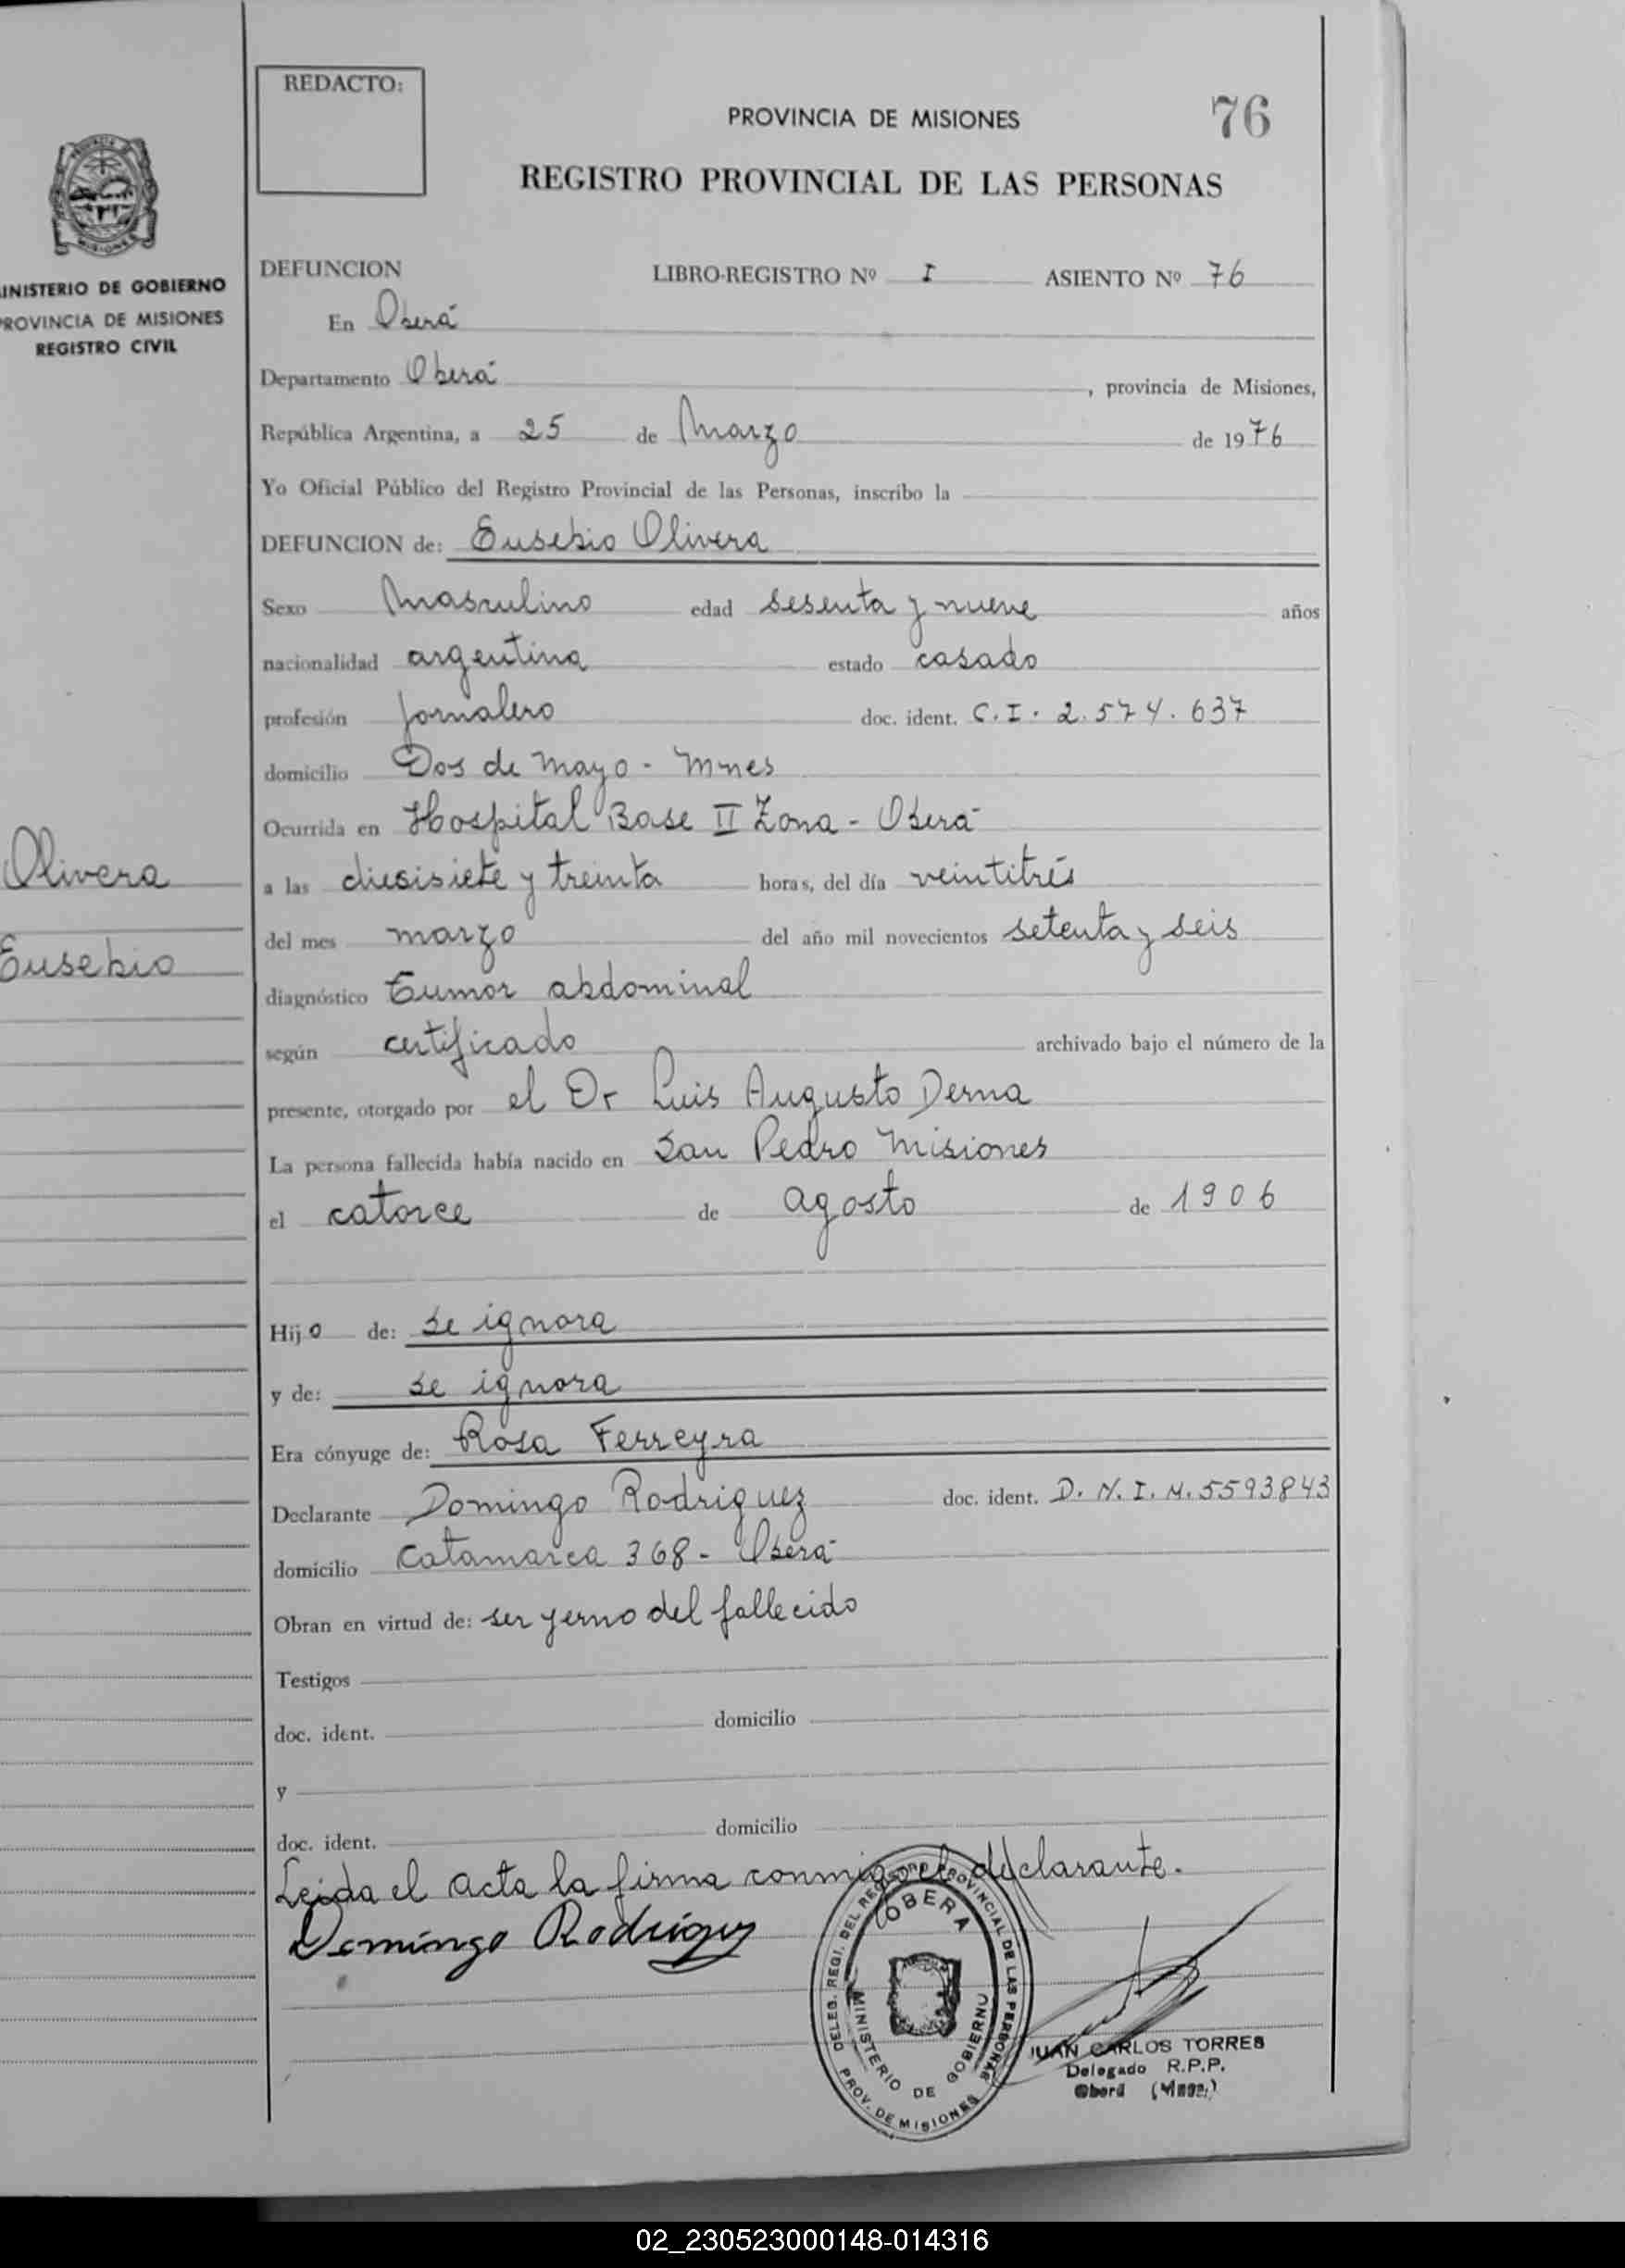 REDACTO:
PROVINCIA DE MISIONES
76
REGISTRO PROVINCIAL DE LAS PERSONAS
INISTERIO DE GOBIERNO
PROVINCIA DE MISIONES
REGISTRO CIVIL
DEFUNCION LIBRO-REGISTRO Nº I ASIENTO Nº 76
En Oberá
Departamento Oberá, provincia de Misiones,
República Argentina, a 25 de Marzo de 1976
Yo Oficial Público del Registro Provincial de las Personas, inscribo la
DEFUNCION de: Eusebio Olivera
Sexo Masculino edad sesenta y nueve años
nacionalidad argentina estado casado
profesión Jornalero doc. ident. C.I. 2.574.637
domicilio Dos de Mayo - Mnes
Ocurrida en Hospital Base II Zona - Oberá
Olivera
a las diesisiete y treinta horas, del día veintitrés
del mes marzo del año mil novecientos setenta y seis
Eusebio
diagnóstico Tumor abdominal
según certificado archivado bajo el número de la
presente, otorgado por el Dr Luis Augusto Derna
La persona fallecida había nacido en San Pedro Misiones
el catorce de agosto de 1906
Hijo de: se ignora
y de: se ignora
Era cónyuge de: Rosa Ferreyra
Declarante Domingo Rodriguez doc. ident. D.N.I.M. 5593843
domicilio Catamarca 368 - Oberá
Obran en virtud de: ser yerno del fallecido
Testigos
doc. ident. domicilio
y
doc. ident. domicilio
Leida el acta la firma conmigo el declarante.
Domingo Rodriguez
DELEG. REGI. DEL REGISTRO PROVINCIAL DE LAS PERSONAS
OBERA
MINISTERIO DE GOBIERNO
PROV. DE MISIONES
JUAN CARLOS TORRES
Delegado R.P.P.
Oberá (Mnes.)
02_230523000148-014316